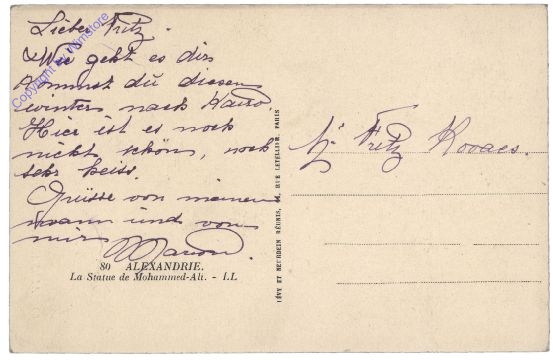 Lieber Fritz.
Wie geht es dir
Kommst du diesen
winter nach Kairo.
Hier ist es noch
nicht schön, noch
sehr heiss.
Grüsse von meinem
mann und von
mir
80 ALEXANDRIE.
La Statue de Mohammed-Ali. - LL
LÉVY ET NEURDEIN RÉUNIS, 44, RUE LETELLIER, PARIS
Fritz Kovacs.